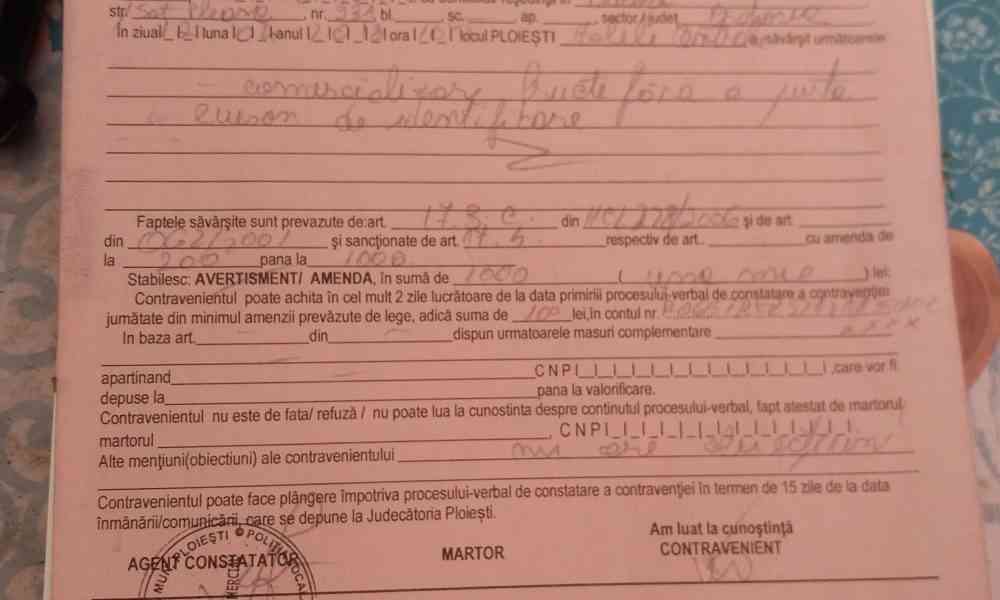 str. Sat nr. 232 bl. sc. ap. , sector / județ
În ziua luna anul ora locul PLOIEȘTI Halele săvârșit următoarele
- comercializare fructe fără a purta
ecuson de identificare
Faptele săvârșite sunt prevazute de:art. 17.3.C. din HCL 278/2006 și de art
din OG2/2001 și sancționate de art. 17.5. respectiv de art. cu amenda de
la 200 pana la 1000
Stabilesc: AVERTISMENT/ AMENDA, în sumă de 1000 ( una mie ) lei;
Contravenientul poate achita în cel mult 2 zile lucrătoare de la data primirii procesului-verbal de constatare a contravenției
jumătate din minimul amenzii prevăzute de lege, adică suma de 100 lei,în contul nr.
In baza art. din dispun urmatoarele masuri complementare
apartinand CNP ,care vor fi
depuse la pana la valorificare.
Contravenientul nu este de fata/ refuză / nu poate lua la cunostinta despre continutul procesului-verbal, fapt atestat de martorul
martorul , CNP
Alte mențiuni(obiectiuni) ale contravenientului nu are obiecțiuni
Contravenientul poate face plângere împotriva procesului-verbal de constatare a contravenției în termen de 15 zile de la data
înmânării/comunicării, care se depune la Judecătoria Ploiești.
Am luat la cunoștință
AGENT CONSTATATOR MARTOR CONTRAVENIENT
PLOIEȘTI POLIȚIA LOCALĂ